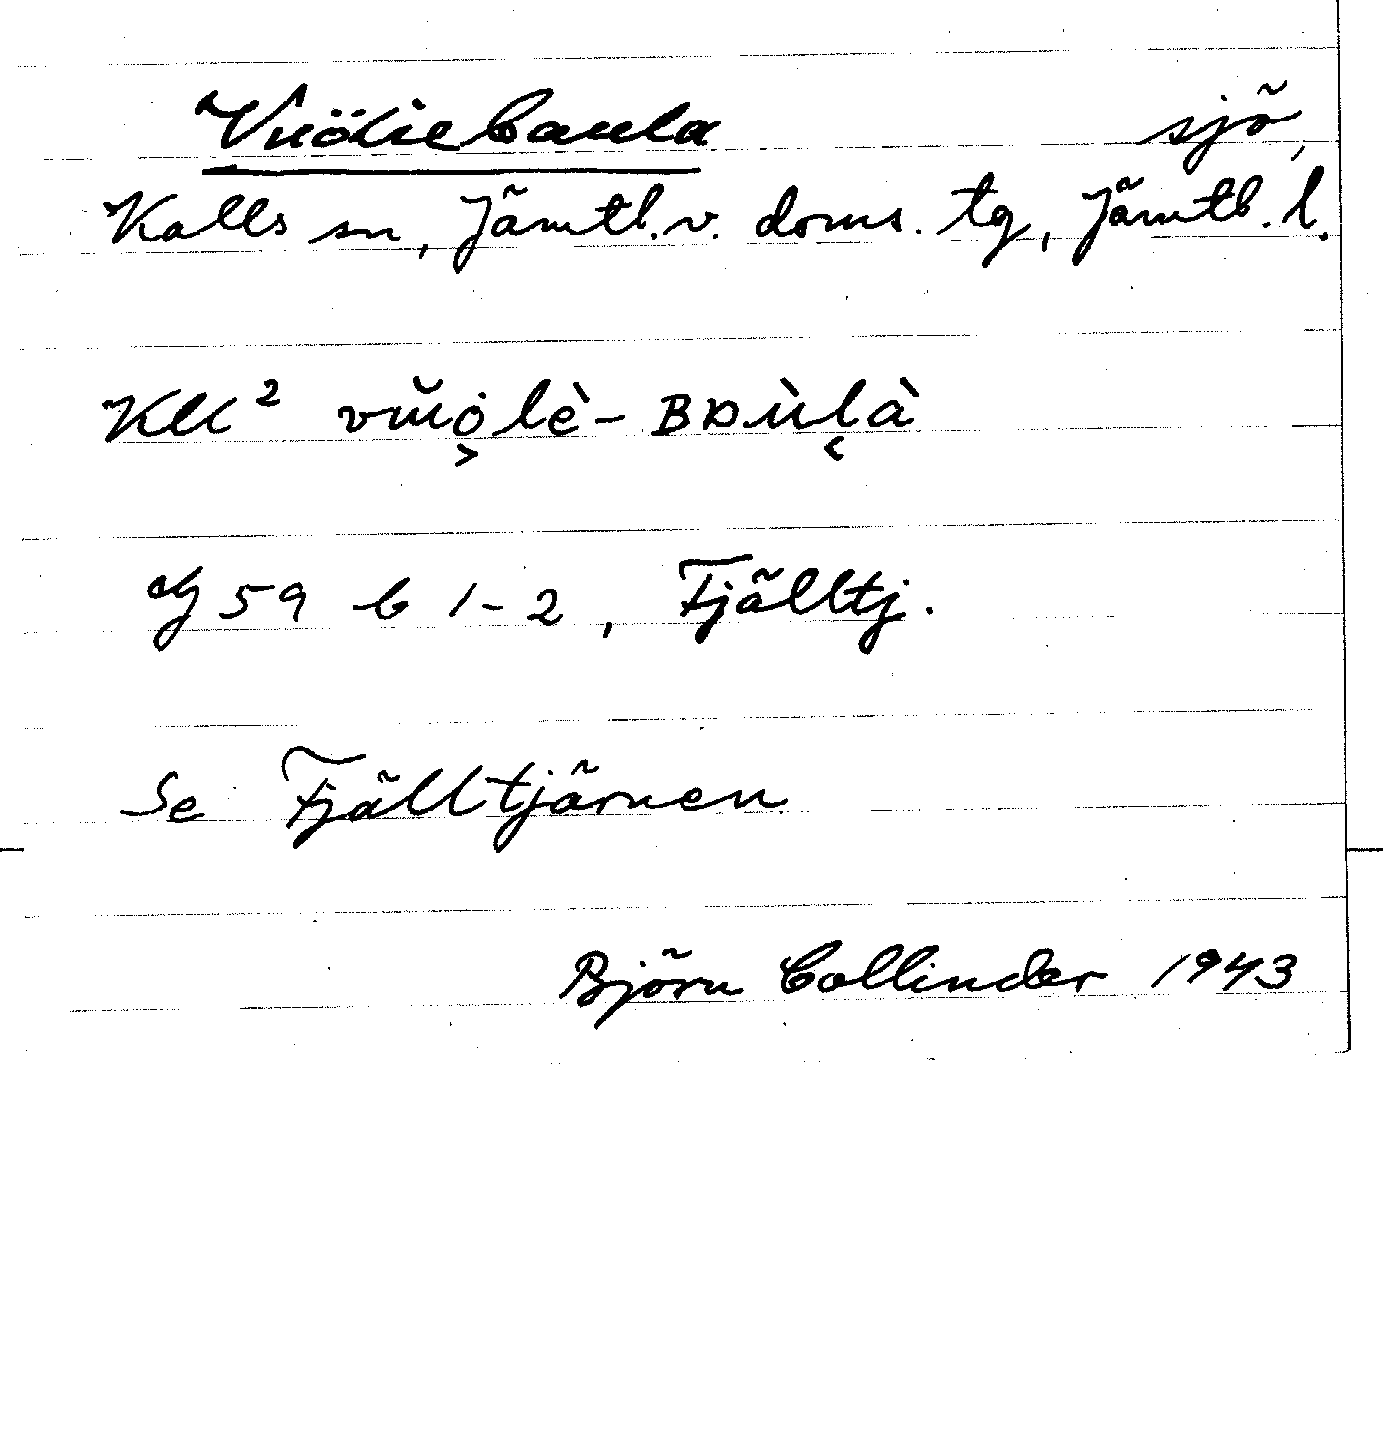 Vuöliebaula sjö,
Kalls sn, Jämtl. v. doms. tg, Jämtl. l.
KlK² vŭọlè-Bᴅùlà
g 59 b 1-2, Fjälltj.
Se Fjälltjärnen
Björn Collinder 1943